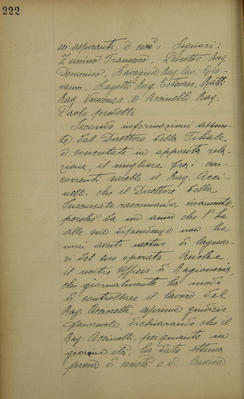 222
ni aspiranti, e cioè: Signori:
Zunino Francesco, Rag.
Domenico, Rag. Cav. Gio-
vanni, Rag. Esterini,
Rag. Vincenzo e Accinelli Rag.
Paolo predetto
Secondo informazioni assun-
te dal Direttore della Filiale,
e concretate in apposita rela-
zione, il migliore fra i con-
correnti sarebbe il Rag. Acci-
nelli, che il Direttore della
Succursale raccomanda vivamente,
perchè da un anno che l'ha
alle sue dipendenze non ha
mai avuto motivo di lagnar-
si del suo operato. Anche
il nostro Ufficio di Ragioneria,
che giornalmente ha modo
di controllare il lavoro del
Rag. Accinelli, esprime giudizio
favorevole, dichiarando che il
Rag. Accinelli, per quanto in
giovane età, ha dato ottima
prova di serietà e di